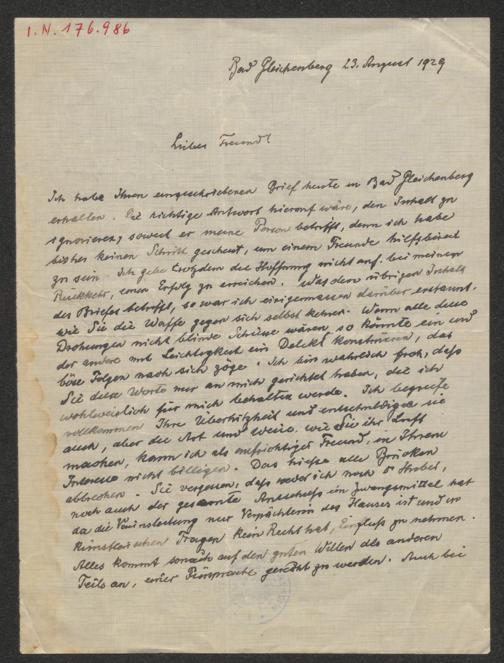 I.N. 176.986
Bad Gleichenberg 23. August 1929
Lieber Freund!
Ich habe Ihren eingeschriebenen Brief heute in Bad Gleichenberg
erhalten. Die richtige Antwort hierauf wäre, den Inhalt zu
ignorieren, soweit er meine Person betrifft, denn ich habe
bisher keinen Schritt gescheut, um einem Freunde hilfsbereit
zu sein. Ich gebe trotzdem die Hoffnung nicht auf, bei meiner
Rückkehr, einen Erfolg zu erreichen. Was den übrigen Inhalt
des Briefes betrifft, so war ich einigermassen darüber erstaunt,
wie Sie die Waffe gegen sich selbst kehren. Wenn alle diese
Drohungen nicht blinde Schüsse wären, so könnte ein und
der andere mit Leichtigkeit ein Delikt konstruieren, das
böse Folgen nach sich zöge. Ich bin wahrlich froh, dass
Sie diese Worte nur an mich gerichtet haben, die ich
wohlweislich für mich behalten werde. Ich begreife
vollkommen Ihre Überhitztheit und entschuldige sie
auch, aber die Art und Weise wie Sie ihr Luft
machen, kann ich als aufrichtiger Freund, in Ihrem
Interesse nicht billigen. Das hiesse alle Brücken
abbrechen. Sie vergessen, dass weder ich noch Strobl,
noch auch der gesamte Ausschuss ein Zwangsmittel hat
da die Vereinsleitung nur des Hauses ist und in
künstlerischen Fragen kein Recht hat, Einfluss zu nehmen.
Alles kommt sonach auf den guten Willen des anderen
Teils an, einer Fürsprache gerecht zu werden. Auch bei